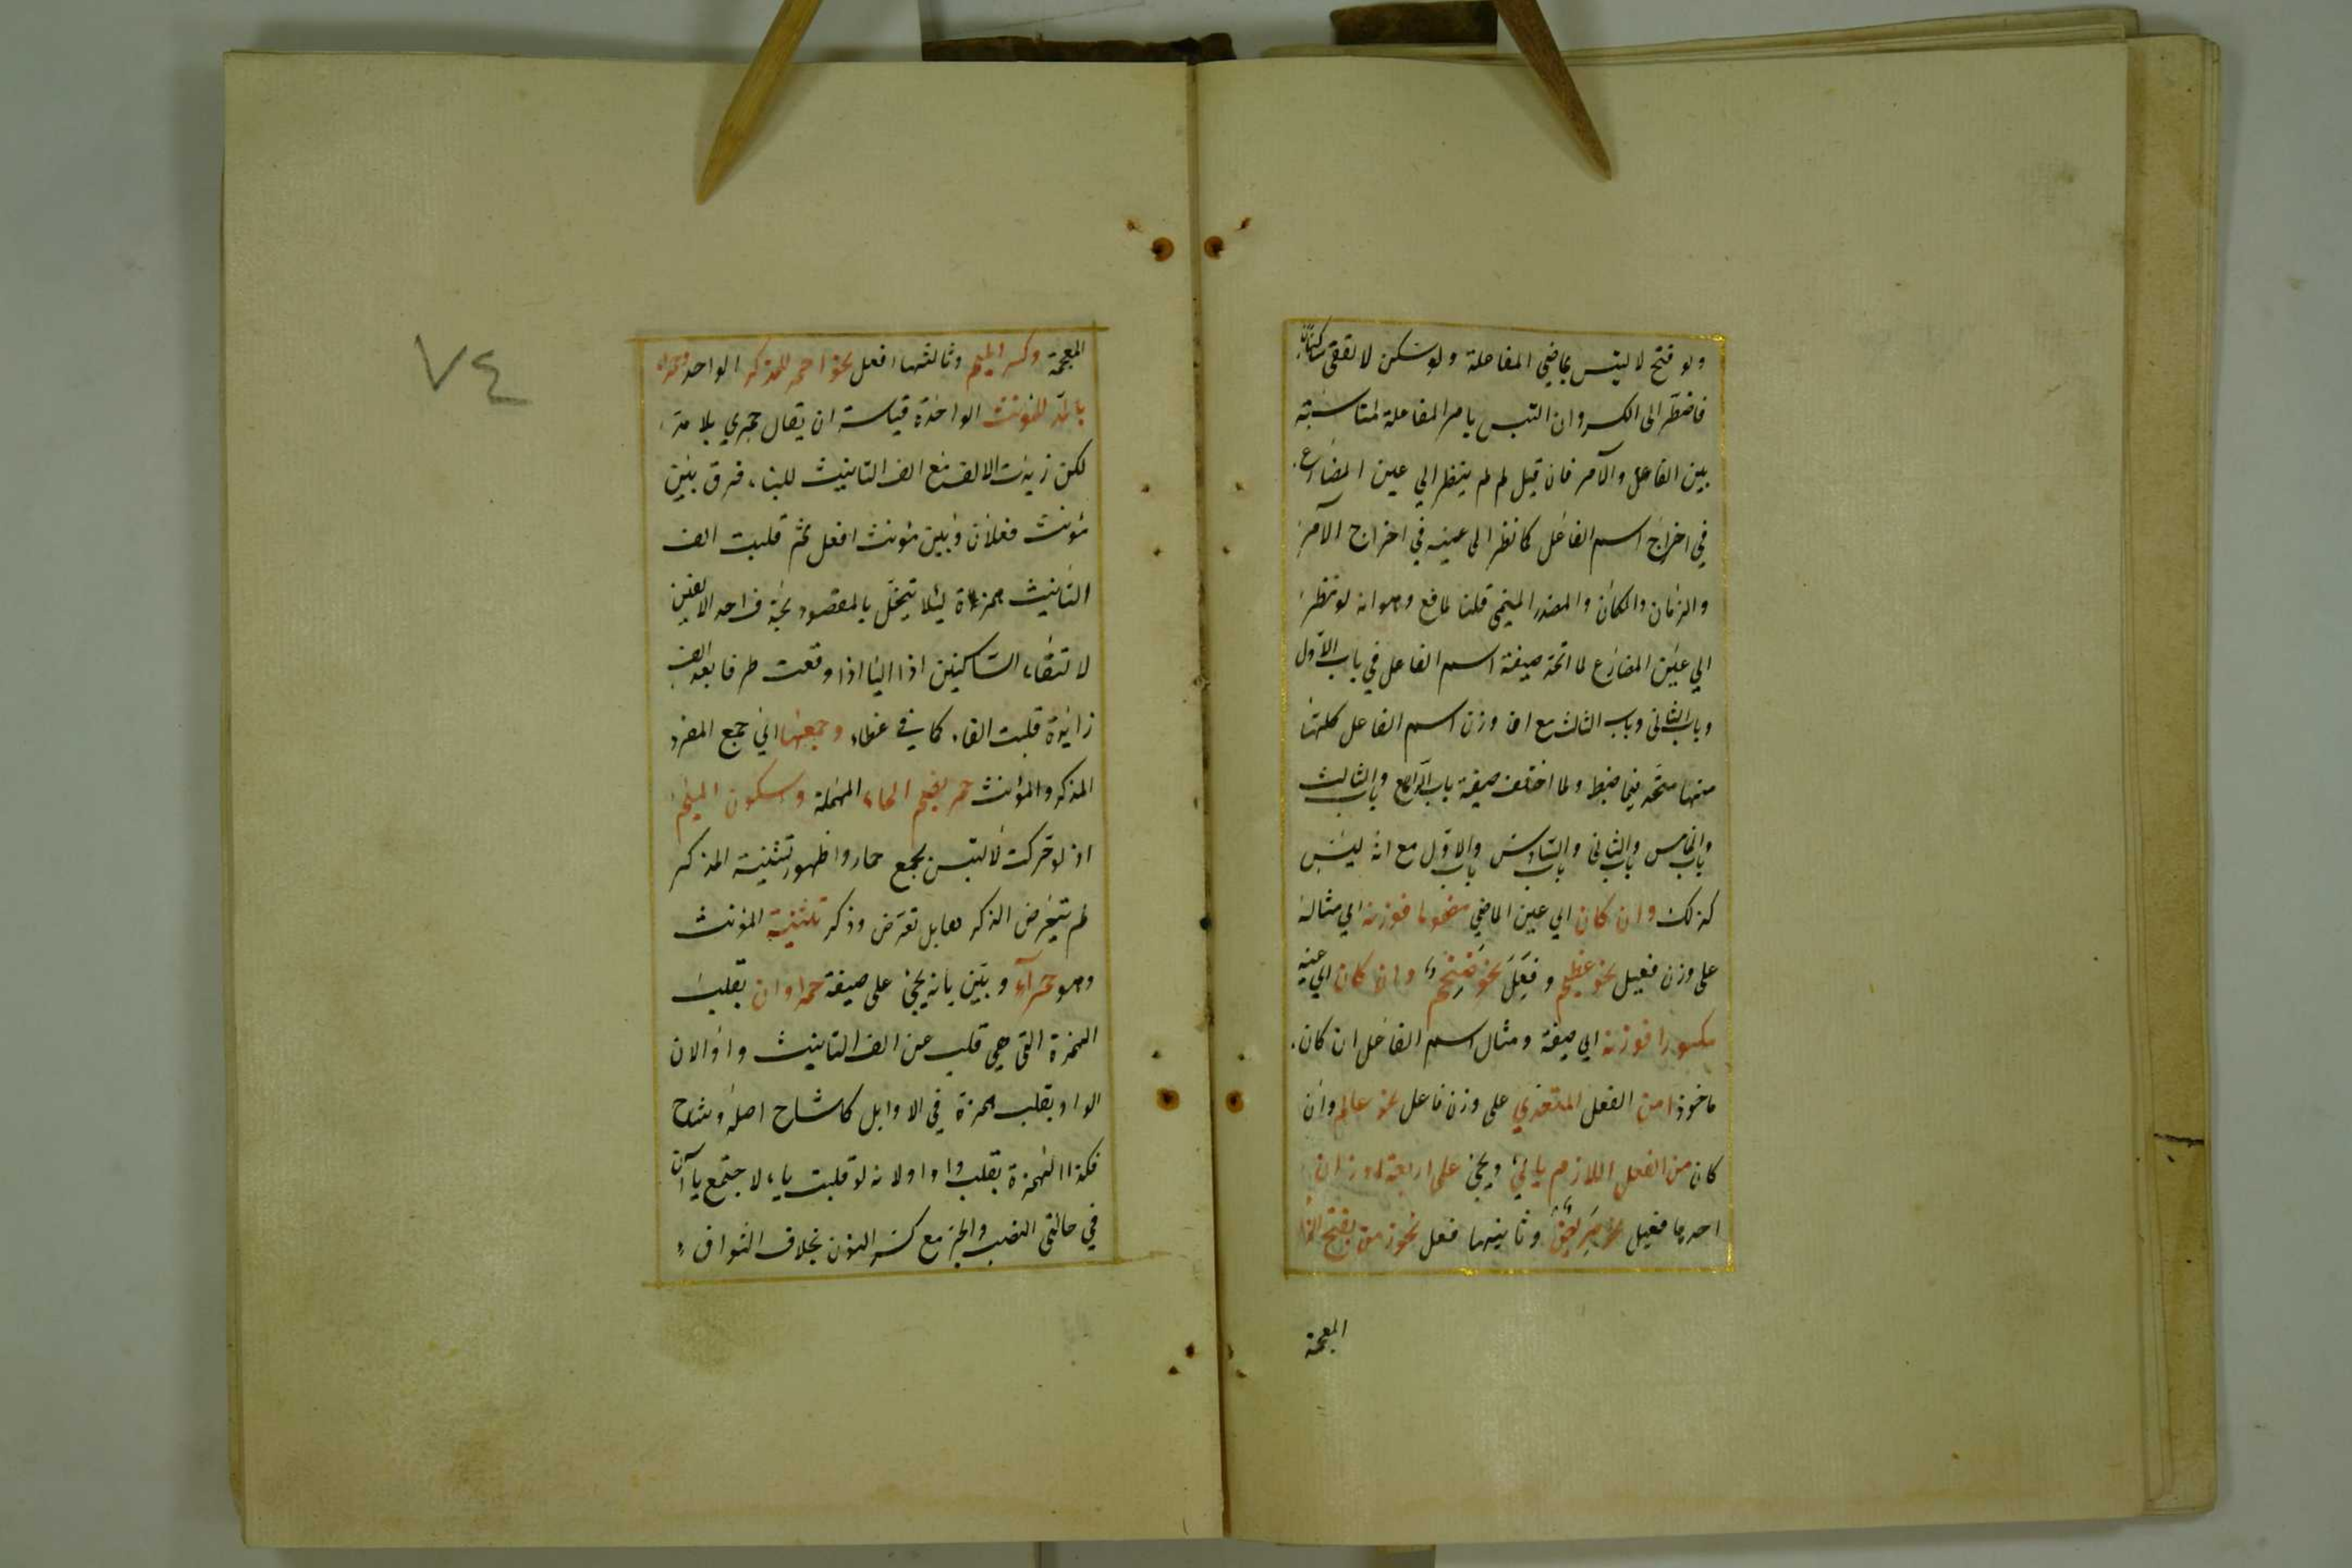 ولو فتح لالتبس بماضي المفاعلة ولو سكن لالتقى ساكنان
فاضطر الى الكسر وان التبس بامر المفاعلة لمناسبة
بين الفاعل والآمر فان قيل لم لم ينظر الي عين المضارع
في اخراج اسم الفاعل كما نظر الى عينه في اخراج الآمر
والزمان والمكان والمصدر الميمي قلنا لمانع وهو انه لو نظر
الي عين المضارع لما اتحد صيغة اسم الفاعل في باب الاول
وباب الثاني وباب الثالث مع ان وزن اسم الفاعل كلها
منها متحد فيما ضبط ولما اختلف صيغة باب الرابع وباب الثالث
وباب الخامس وباب الثاني وباب السادس وباب الاول مع انه ليس
كذلك وان كان اي عين الماضي مضموما فوزنه اي مثاله
على وزن فعيل نحو عظيم وفعل نحو ضخم وان كان اي عينه
مكسورا فوزنه اي صيغة ومثال اسم الفاعل ان كان
ماخوذا من الفعل المتعدي على وزن فاعل نحو عالم وان
كان من الفعل اللازم ياتي ويجئ على اربعة اوزان
احدها فعيل نحو مريض وثانيها فعل نحو زمن بفتح الزا
المعجمة
المعجمة وكسر الميم وثالثها افعل نحو احمر للمذكر الواحد وحمراء
بالمد للمونث الواحدة قياسه ان يقال حمري بلا مد
لكن زيدت الالف مع الف التانيث للبناء فرق بين
مؤنث فعلان وبين مؤنث افعل ثم قلبت الف
التانيث همزة ليلا يختل بالمقصود بحذف احد الالفين
لالتقاء الساكنين اذا اليا اذا وقعت طرفا بعد الف
زائدة قلبت الفا كما في غطاء وجمعها اي جمع المفرد
المذكر والمؤنث حمر بضم الحاء المهملة وسكون الميم
اذ لو حركت لالتبس بجمع حمار واظهور تثنية المذكر
لم يتعرض الذكرها بل تعرض وذكر تثنية المؤنث
وهو حمرآء وبين بانه يجئ على صيغة حمراوان بقلب
الهمزة التي هي قلب عن الف التانيث واوا لان
الواو يقلب همزة في الاوايل كاشاح اصله وشاح
فكذا الهمزة بقلب واوا ولانه لو قلبت ياء لاجتمع ياآن
في حالتي النصب والجر مع كسر النون بخلاف النواو
٧٤